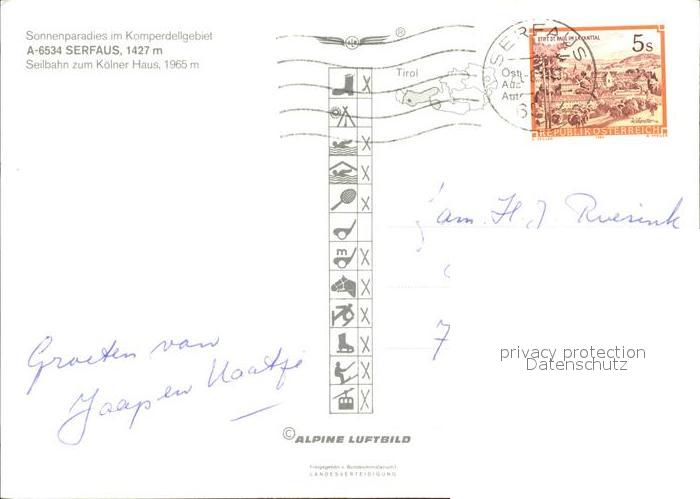 Sonnenparadies im Komperdellgebiet
A-6534 SERFAUS, 1427 m
Seilbahn zum Kölner Haus, 1965 m
®
Tirol
SERFAUS
STIFT ST. PAUL IM LAVANTTAL
5s
REPUBLIK ÖSTERREICH
fam. H. J. Roesink
7
privacy protection
Datenschutz
m
Groeten van
Jaap en Naatje
© ALPINE LUFTBILD
Freigegeben v. Bundesministerium f.
LANDESVERTEIDIGUNG